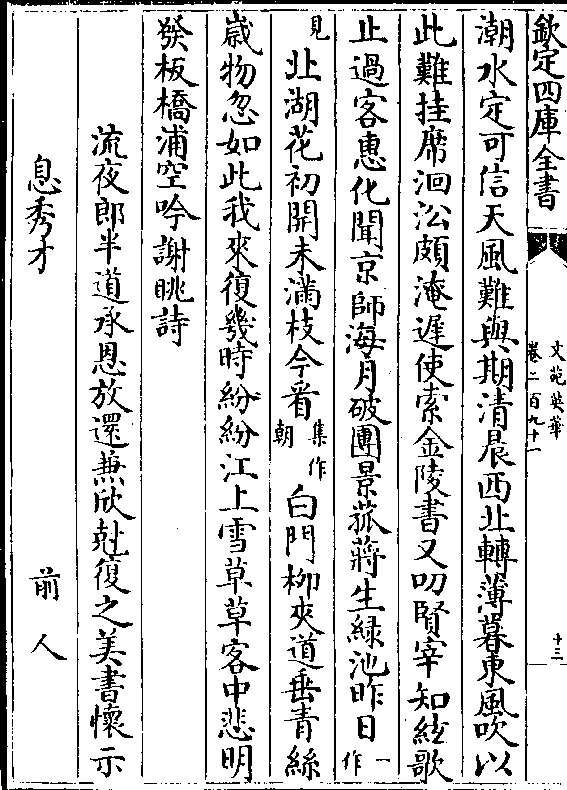 欽定四庫全書
文苑英華
卷二百九十一
十三
潮水定可信天風難與期清晨西北轉薄暮東風吹以
此難挂席洄㳂頗淹遲使索金陵書又叨賢宰知絃歌
止過客惠化聞京師海月破團景菰蔣生綠池昨日一作
見北湖花初開未滿枝今看集作朝白門柳夾道垂青絲
歲物忽如此我來復幾時紛紛江上雪草草客中悲明
發板橋浦空吟謝眺詩
流夜郎半道承恩放還兼欣尅復之美書懷示
息秀才
前人